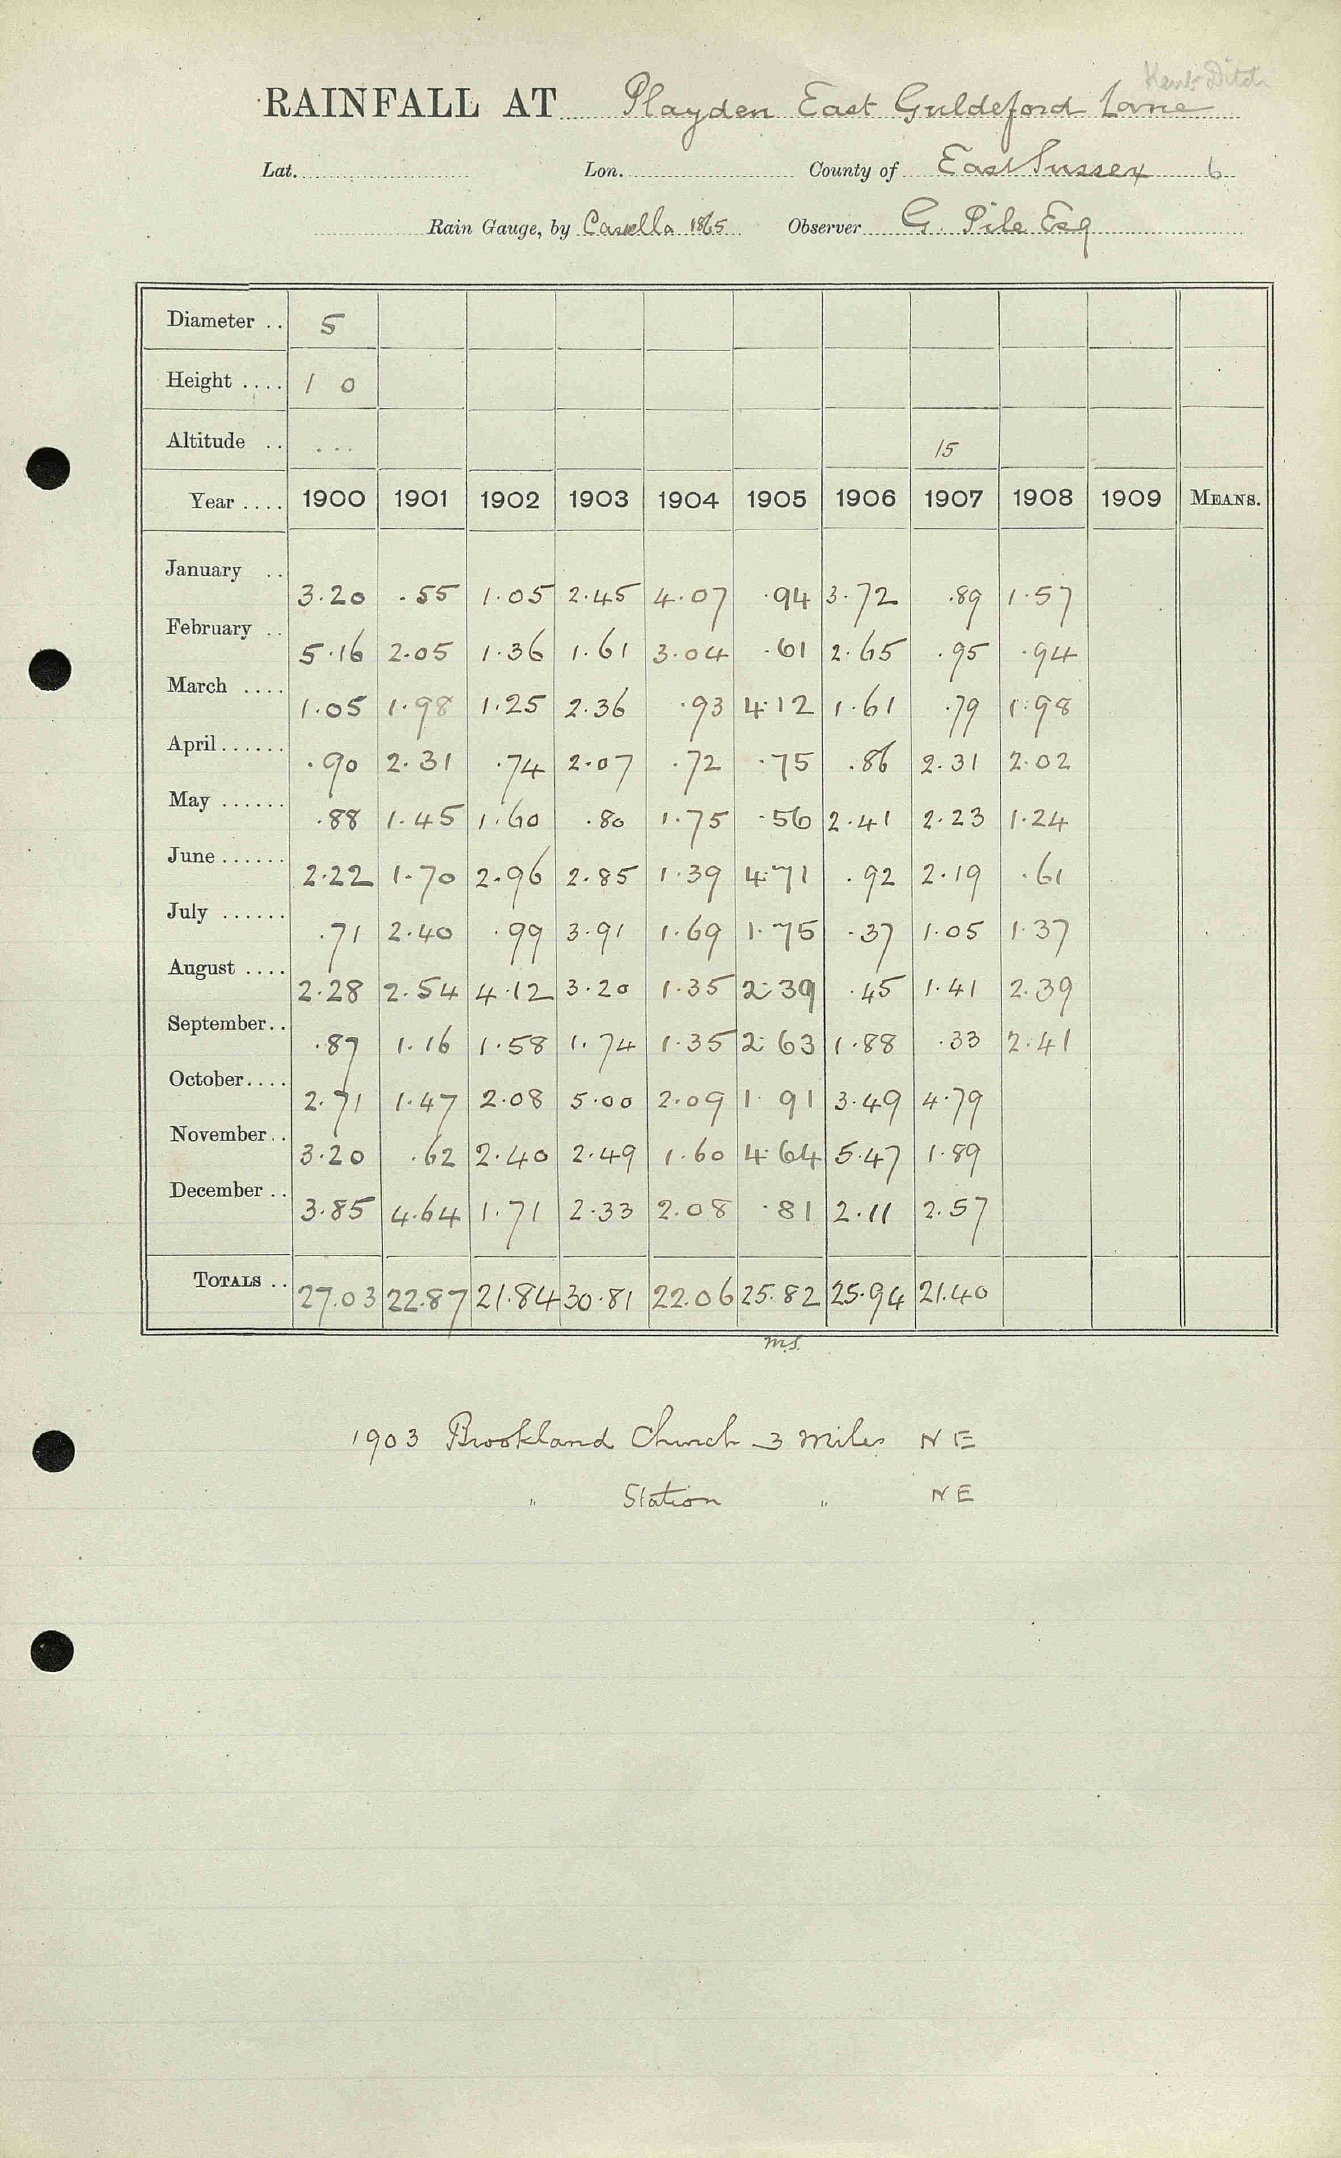 Kent Ditch
RAINFALL AT Playden East Guldeford Lane
Lat. Lon. County of East Sussex 6
Rain Gauge, by Casella 1865 Observer G. Pile Esq
Diameter .. 5
Height .... 1 0
Altitude .. ... 15
Year .... 1900 1901 1902 1903 1904 1905 1906 1907 1908 1909 MEANS.
January .. 3.20 .55 1.05 2.45 4.07 .94 3.72 .89 1.57
February .. 5.16 2.05 1.36 1.61 3.04 .61 2.65 .95 .94
March .... 1.05 1.98 1.25 2.36 .93 4.12 1.61 .79 1.98
April...... .90 2.31 .74 2.07 .72 .75 .86 2.31 2.02
May ...... .88 1.45 1.60 .80 1.75 .56 2.41 2.23 1.24
June...... 2.22 1.70 2.96 2.85 1.39 4.71 .92 2.19 .61
July ...... .71 2.40 .99 3.91 1.69 1.75 .37 1.05 1.37
August .... 2.28 2.54 4.12 3.20 1.35 2.39 .45 1.41 2.39
September.. .87 1.16 1.58 1.74 1.35 2.63 1.88 .33 2.41
October.... 2.71 1.47 2.08 5.00 2.09 1.91 3.49 4.79
November.. 3.20 .62 2.40 2.49 1.60 4.64 5.47 1.89
December .. 3.85 4.64 1.71 2.33 2.08 .81 2.11 2.57
TOTALS .. 27.03 22.87 21.84 30.81 22.06 25.82 25.94 21.40
M.S.
1903 Brookland Church 3 miles NE
" Station " NE